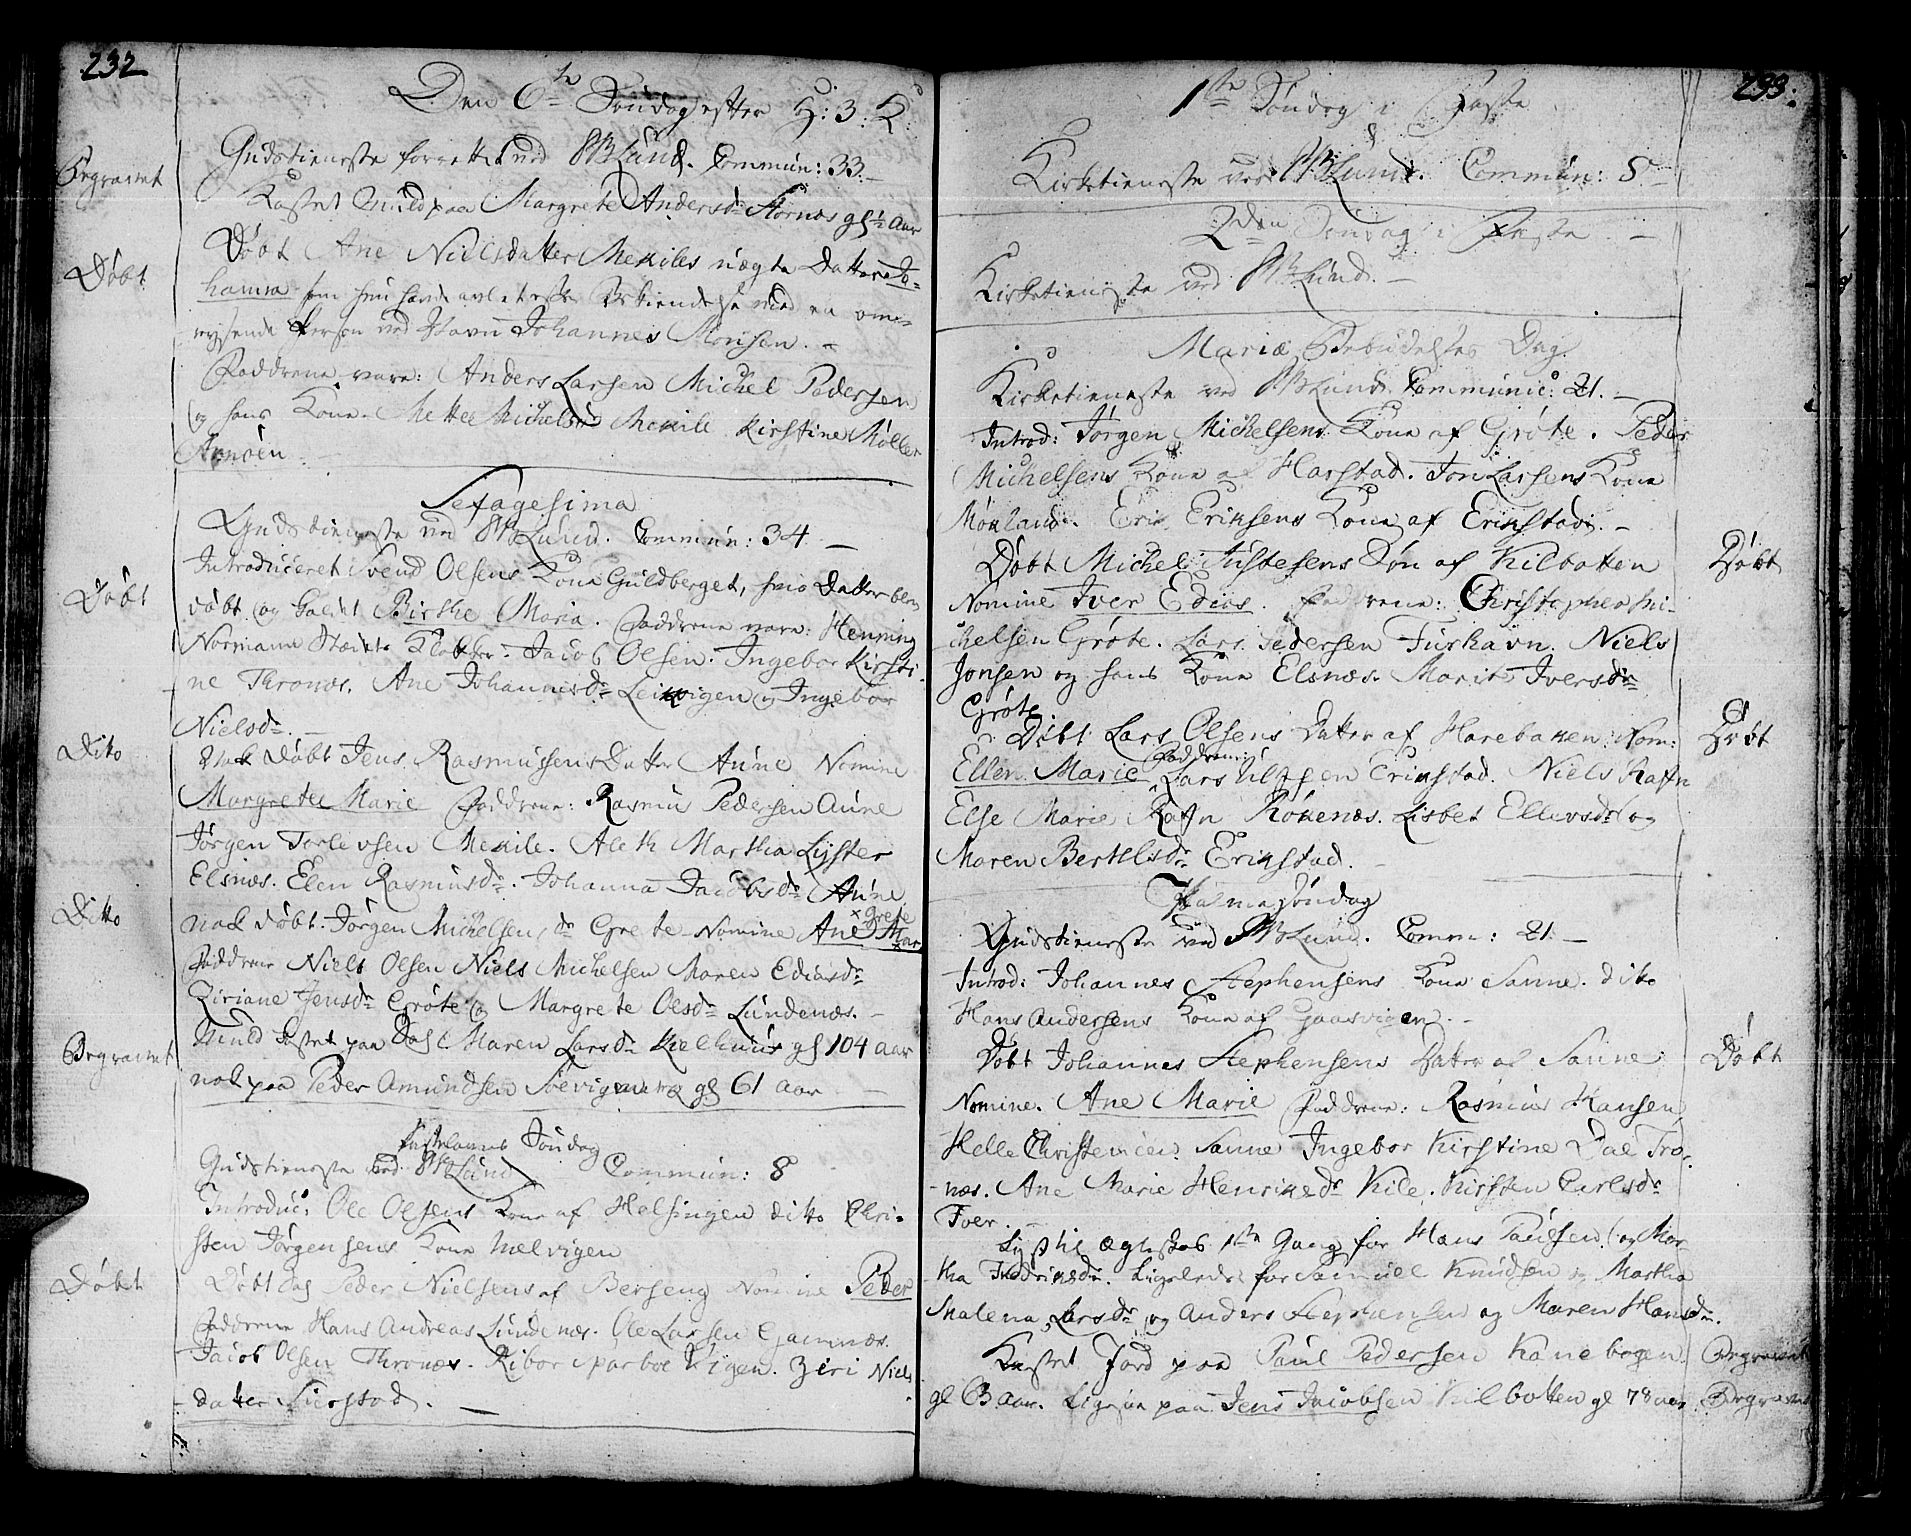 232
Den 6te Søndag efter H: 3. K:
Begravet
Gudstieneste forrettet ved Lund. Commun: 33.
Kastet Muld paa Margrete Andersdr Stornæs gl ½ Aar
Døbt
Døbt Ane Nielsdatter Mekiles uægte Datter Jo-
hanna som hun havde avlet efter Bekiendelse med en om-
reysende Person ved Navn Johannes Monsen.
Faddrene vare: Anders Larsen Michel Pedersen
og hans Kone. Mette Michelsdr Mekile Kirstine Møller
Arnøen
Sexagesima
Gudstieneste ved Lund. Commun: 34
Introduceret Svend Olsens Kone Guldberget, hvis Datter blev
Døbt
døbt og kaldet Birthe Maria. Faddrene vare: Henning
Normann Klokker. Jacob Olsen. Ingebor Kirsti-
ne Thronæs. Ane Johannesdr Leikvigen og Ingebor
Nielsdr.
Dito
nok døbt Jens Rasmussens Datter Aune Nomine
Margrete Marie Faddrene: Rasmus Pedersen Aune
Jørgen Torlevsen Mekile. Aleth Martha Lyster
Elsnæs. Elen Rasmusdr. Johanna Jacobsdr Aune
Ditto
×grete
nok døbt Jørgen Michelsens dr Grøte Nomine Ane Mar
Faddrene Niels Olsen Niels Michelsen Maren Ediasdr
Ziriane Jensdr Grøte og Margrete Olsdr Lundenæs.
Begravet
Muld kastet paa Maren Larsdr Kielhuus gl 104 aar
nok paa Peder Amundsen Søevigmære gl 61 aar
Fastelavns Søndag
Gudstieneste ved Lund Commun: 8
Introduc: Ole Olsens Kone af Helsingen ditto Chri-
sten Jørgensens Kone Melvigen
Døbt
Døbt Peder Nielsens af Berseng Nomine Peder
Faddrene Hans Andreas Lundenæs. Ole Larsen Gamnæs.
Jacob Olsen Thronæs. Ribor Sparboe Vigen. Ziri Niels
datter Sierstad.
233.
1ste Søndag i Faste
Kirketieneste ved Lund. Commun: 8
2den Søndag i Faste
Kirketieneste ved Lund.
Mariæ Bebudelses Dag.
Kirketieneste ved Lund Communic: 21.
Introd: Jørgen Michelsens Kone af Grøte. Peder
Michelsens Kone af Harstad. Jon Larsens Kone
Mørland. Eric Eriksens Kone af Erikstad.
Døbt
Døbt Michel Justesens Søn af Kilbotten
Nomine Iver Edias. Faddrene: Christopher Mi-
chelsen Grøte. Lars Pedersen Furhavn. Niels
Jonsen og hans Kone Elsnæs. Marit Iversdr
Grøte.
Døbt
Døbt Lars Olsens Datter af Harebaken Nom:
Faddrene:
Ellen Marie Lars Erikstad. Niels Rafn
Else Marie Rafn Rökenæs. Lisbet Ellevsdr og
Maren Bertelsdr Erikstad.
Palmesøndag
Gudstieneste ved Lund. Comm: 21
Introd: Johannes Stephensens Kone Sanne. dito
Hans Andersens Kone af Gaasvigen.
Døbt
Døbt Johannes Stephensens Dater af Sanne
Nomine. Ane Marie Faddrene: Rasmus Hansen
Helle Christence Sanne Ingebor Kirstine Dal Tro-
næs. Ane Marie Henriksdr Kile. Kirsten Carlsdr
Foer.
Lyst til Ægteskab 1ste Gang for Hans Paulsen og Mar-
tha Fredriksdr. Ligeledes for Samuel Knudsen og Martha
Malena Larsdr og Anders Stephensen og Maren Hansdr.
Begravet
Kastet Jord paa Paul Pedersen Kanebogen
Begravet
gl 63 aar. Ligesaa paa Jens Jacobsen Kilbotten gl 78 aar